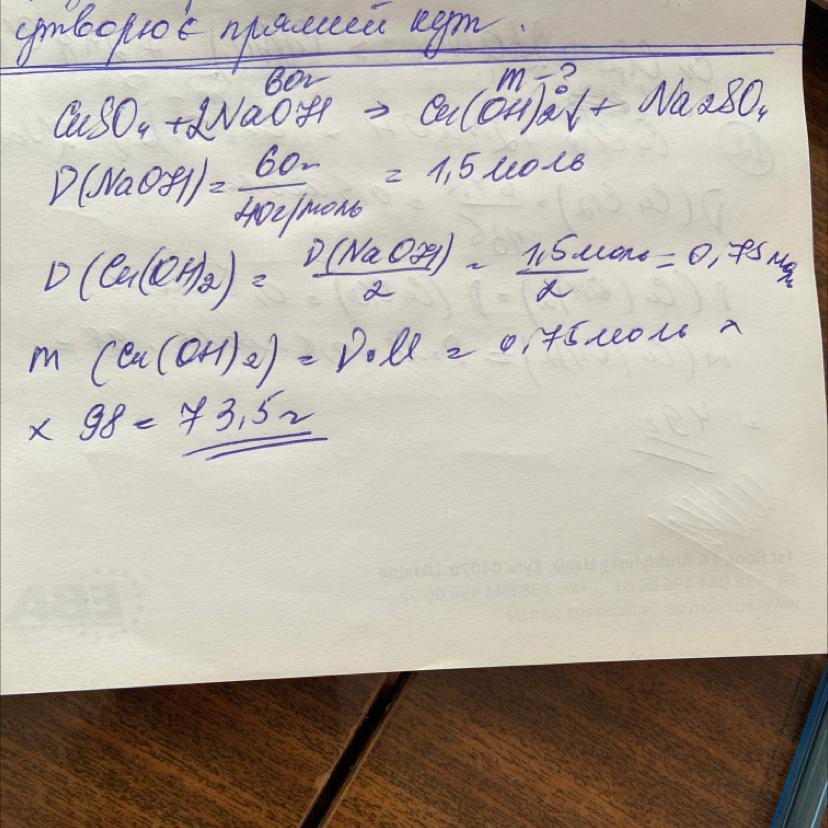 утворює прямий кут.
60г m-?
CuSO₄ + 2NaOH → Cu(OH)₂↓ + Na₂SO₄
ν(NaOH) = 60г / 40г/моль = 1,5 моль
ν(Cu(OH)₂) = ν(NaOH) / 2 = 1,5 моль / 2 = 0,75 моль
m (Cu(OH)₂) = ν·M = 0,75 моль ×
× 98 = 73,5 г